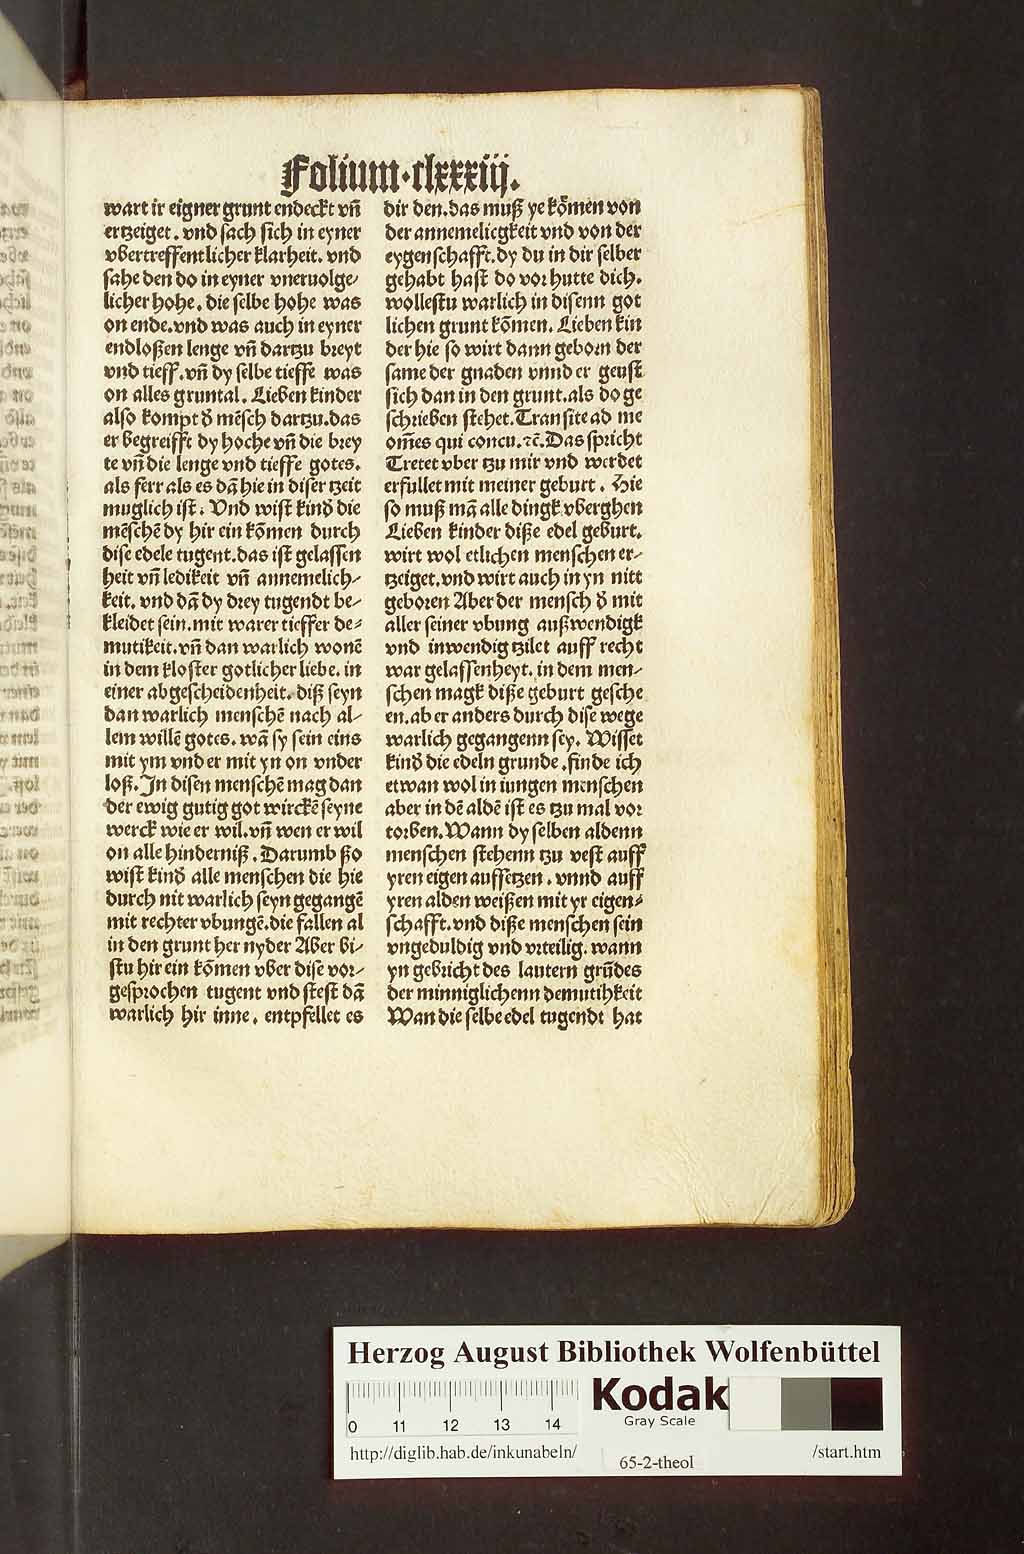 Folium·clxxxiij.
wart ir eigner grunt endeckt vñ
ertzeiget. vnd sach sich in eyner
vbertreffentlicher klarheit. vnd
sahe den do in eyner vneruolge⸗
licher hohe. die selbe hohe was
on ende.vnd was auch in eyner
endloßen lenge vñ dartzu breyt
vnd tieff. vñ dy selbe tieffe was
on alles gruntal. Lieben kinder
also kompt d̕ mẽsch dartzu.das
er begreifft dy hoche vñ die brey
te vñ die lenge vnd tieffe gotes.
als ferr als es dã hie in diser tzeit
muglich ist. Vnd wist kind̕ die
mẽschẽ dy hir ein kõmen durch
dise edele tugent.das ist gelassen
heit vñ ledikeit vñ annemelich⸗
keit. vnd dã dy drey tugendt be⸗
kleidet sein.mit warer tieffer de⸗
mutikeit.vñ dan warlich wonẽ
in dem kloster gotlicher liebe. in
einer abgescheidenheit. diß seyn
dan warlich menschẽ nach al⸗
lem willẽ gotes. wã sy sein eins
mit ym vnd er mit yn on vnder
loß. In disen menschẽ mag dan
der ewig gutig got wirckẽ seyne
werck wie er wil.vñ wen er wil
on alle hinderniß. Darumb ßo
wist kind̕ alle menschen die hie
durch nit warlich seyn gegangẽ
mit rechter vbungẽ.die fallen al
in den grunt her nyder Aber bi⸗
stu hir ein kõmen vber dise vor⸗
gesprochen tugent vnd stest dã
warlich hir inne. entpfellet es
dir den.das muß ye kõmen von
der annemelicgkeit vnd von der
eygenschafft.dy du in dir selber
gehabt hast do vor hutte dich.
wollestu warlich in disenn got
lichen grunt kõmen. Lieben kin
der hie so wirt dann geborn der
same der gnaden vnnd er geust
sich dan in den grunt.als do ge
schrieben stehet.Transite ad me
om̃es qui concu.⁊c̃.Das spricht
Tretet vber tzu mir vnd werdet
erfullet mit meiner geburt. Hie
so muß mã alle dingk vberghen
Lieben kinder diße edel geburt.
wirt wol etlichen menschen er⸗
tzeiget.vnd wirt auch in yn nitt
geboren Aber der mensch d̕ mit
aller seiner vbung außwendigk
vnd inwendig tzilet auff recht
war gelassenheyt. in dem men⸗
schen magk diße geburt gesche
en.ab er anders durch dise wege
warlich gegangenn sey. Wisset
kind̕ die edeln grunde.finde ich
etwan wol in iungen menschen
aber in dẽ aldẽ ist es tzu mal vor
torben.Wann dy selben aldenn
menschen stehenn tzu vest auff
yren eigen auffsetzen. vnnd auff
yren alden weißen mit yr eigen⸗
schafft.vnd diße menschen sein
vngeduldig vnd vrteilig. wann
yn gebricht des lautern grũdes
der minniglichenn demutihkeit
Wan die selbe edel tugendt hat
Herzog August Bibliothek Wolfenbüttel
0 11 12 13 14
Kodak
Gray Scale
http://diglib.hab.de/inkunabeln/
65-2-theol
/start.htm